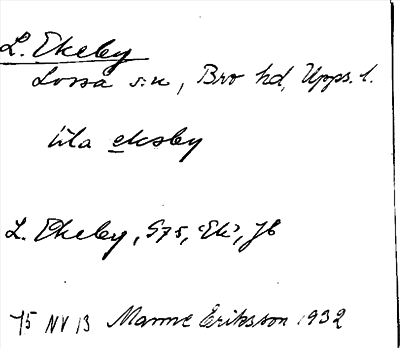 L. Ekeby
Lossa s:n, Bro hd, Upps. l.
lilla eksby
L. Ekeby, S75, 'Ek', Jb
75 NV 13 Manne Eriksson 1932